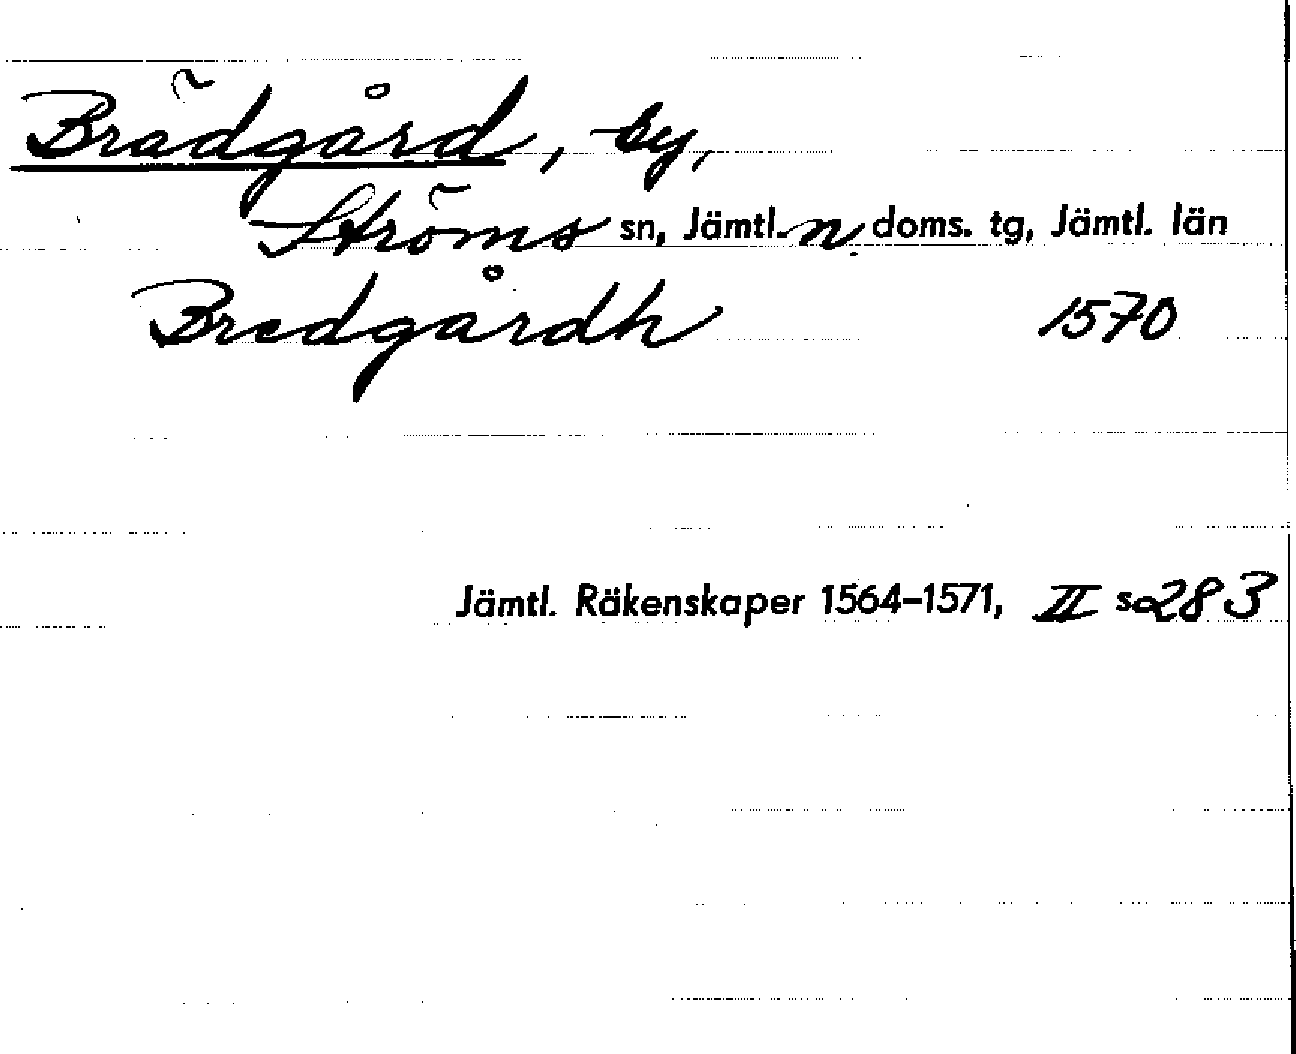 Brädgård, by,
Ströms sn, Jämtl. n doms. tg, Jämtl. län
Bredgårdh 1570
Jämtl. Räkenskaper 1564-1571, II s 283